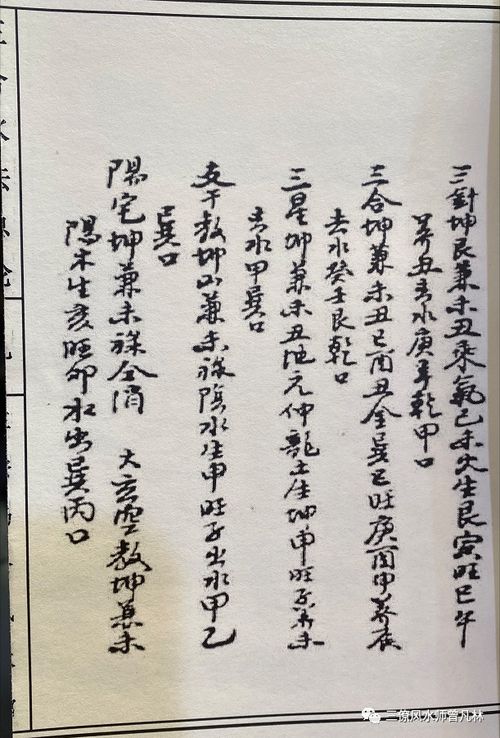 三針坤艮兼未丑乘氣己未火生艮寅旺巳午
葬丑去水庚辛乾甲口
三合坤兼未丑巳酉丑金巽巳旺庚酉申養辰
去水癸壬艮乾口
三星坤兼未丑地元仲龍土生坤申旺子去未
去水甲巽口
支干教坤山兼未祿陰水生申旺子出水甲乙
巽口
陽宅坤兼未祿全消 大玄空教坤兼未
陽木生亥旺卯水出巽丙口
三僚风水师曾凡林